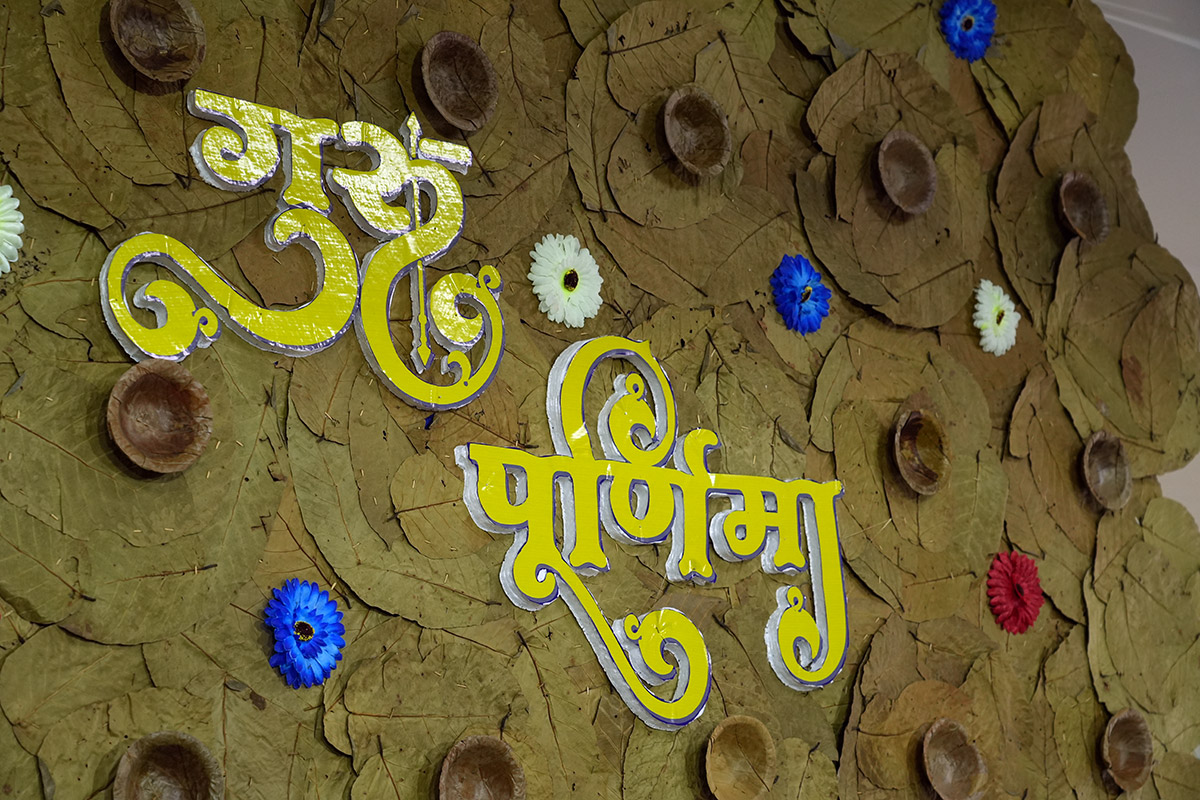 गुरु
पूर्णिमा